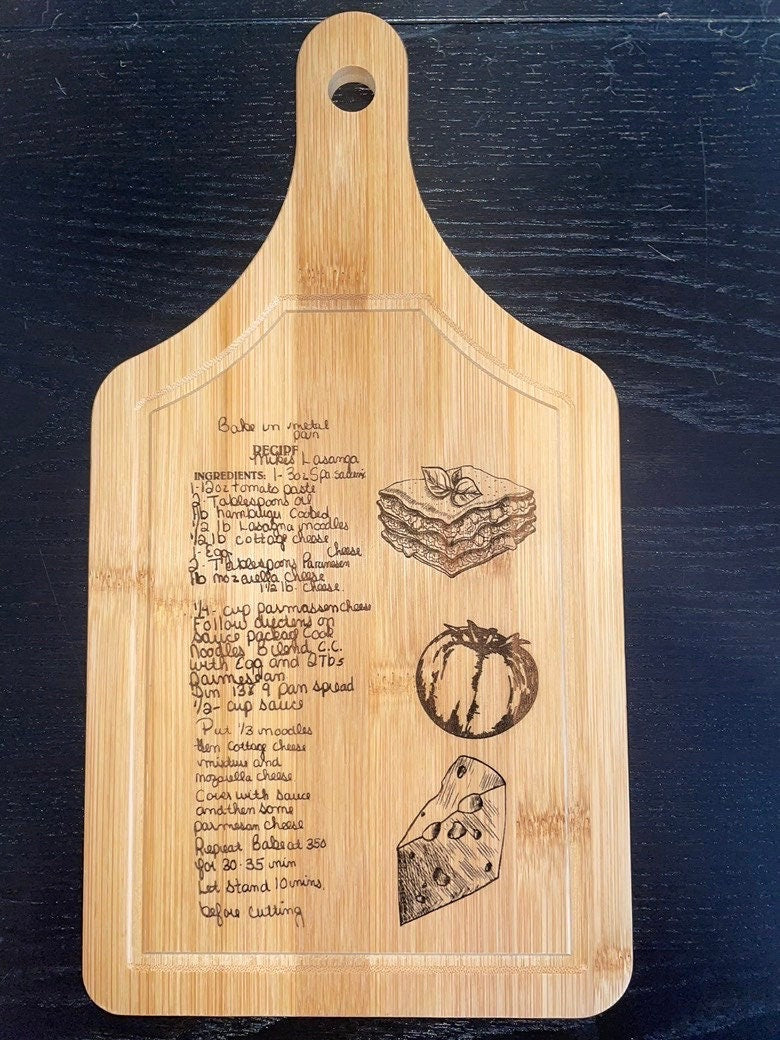 Bake in metal
pan
RECIPE
Mikes Lasanga
INGREDIENTS: 1-3oz Spa.
1-12oz tomato paste
2-Tablespoons oil
1lb hamburger Cooked
1/2 lb Lasagna noodles
1/2 lb cottage cheese
1-Egg cheese
2-Tablespoons Parmesen
1lb mozzarella cheese
1 1/2 lb. cheese.
1/4- cup parmassen cheese
Follow on
sauce packag Cook
Noodles Blend C.C.
with Egg and 2Tbs
parmesan
In 13x9 pan spread
1/2- cup sauce
Put 1/3 noodles
then Cottage cheese
mixture and
cheese
Cover with sauce
and then some
parmesan cheese
Repeat Bake at 350
for 30-35 min
Let stand 10 mins.
before cutting